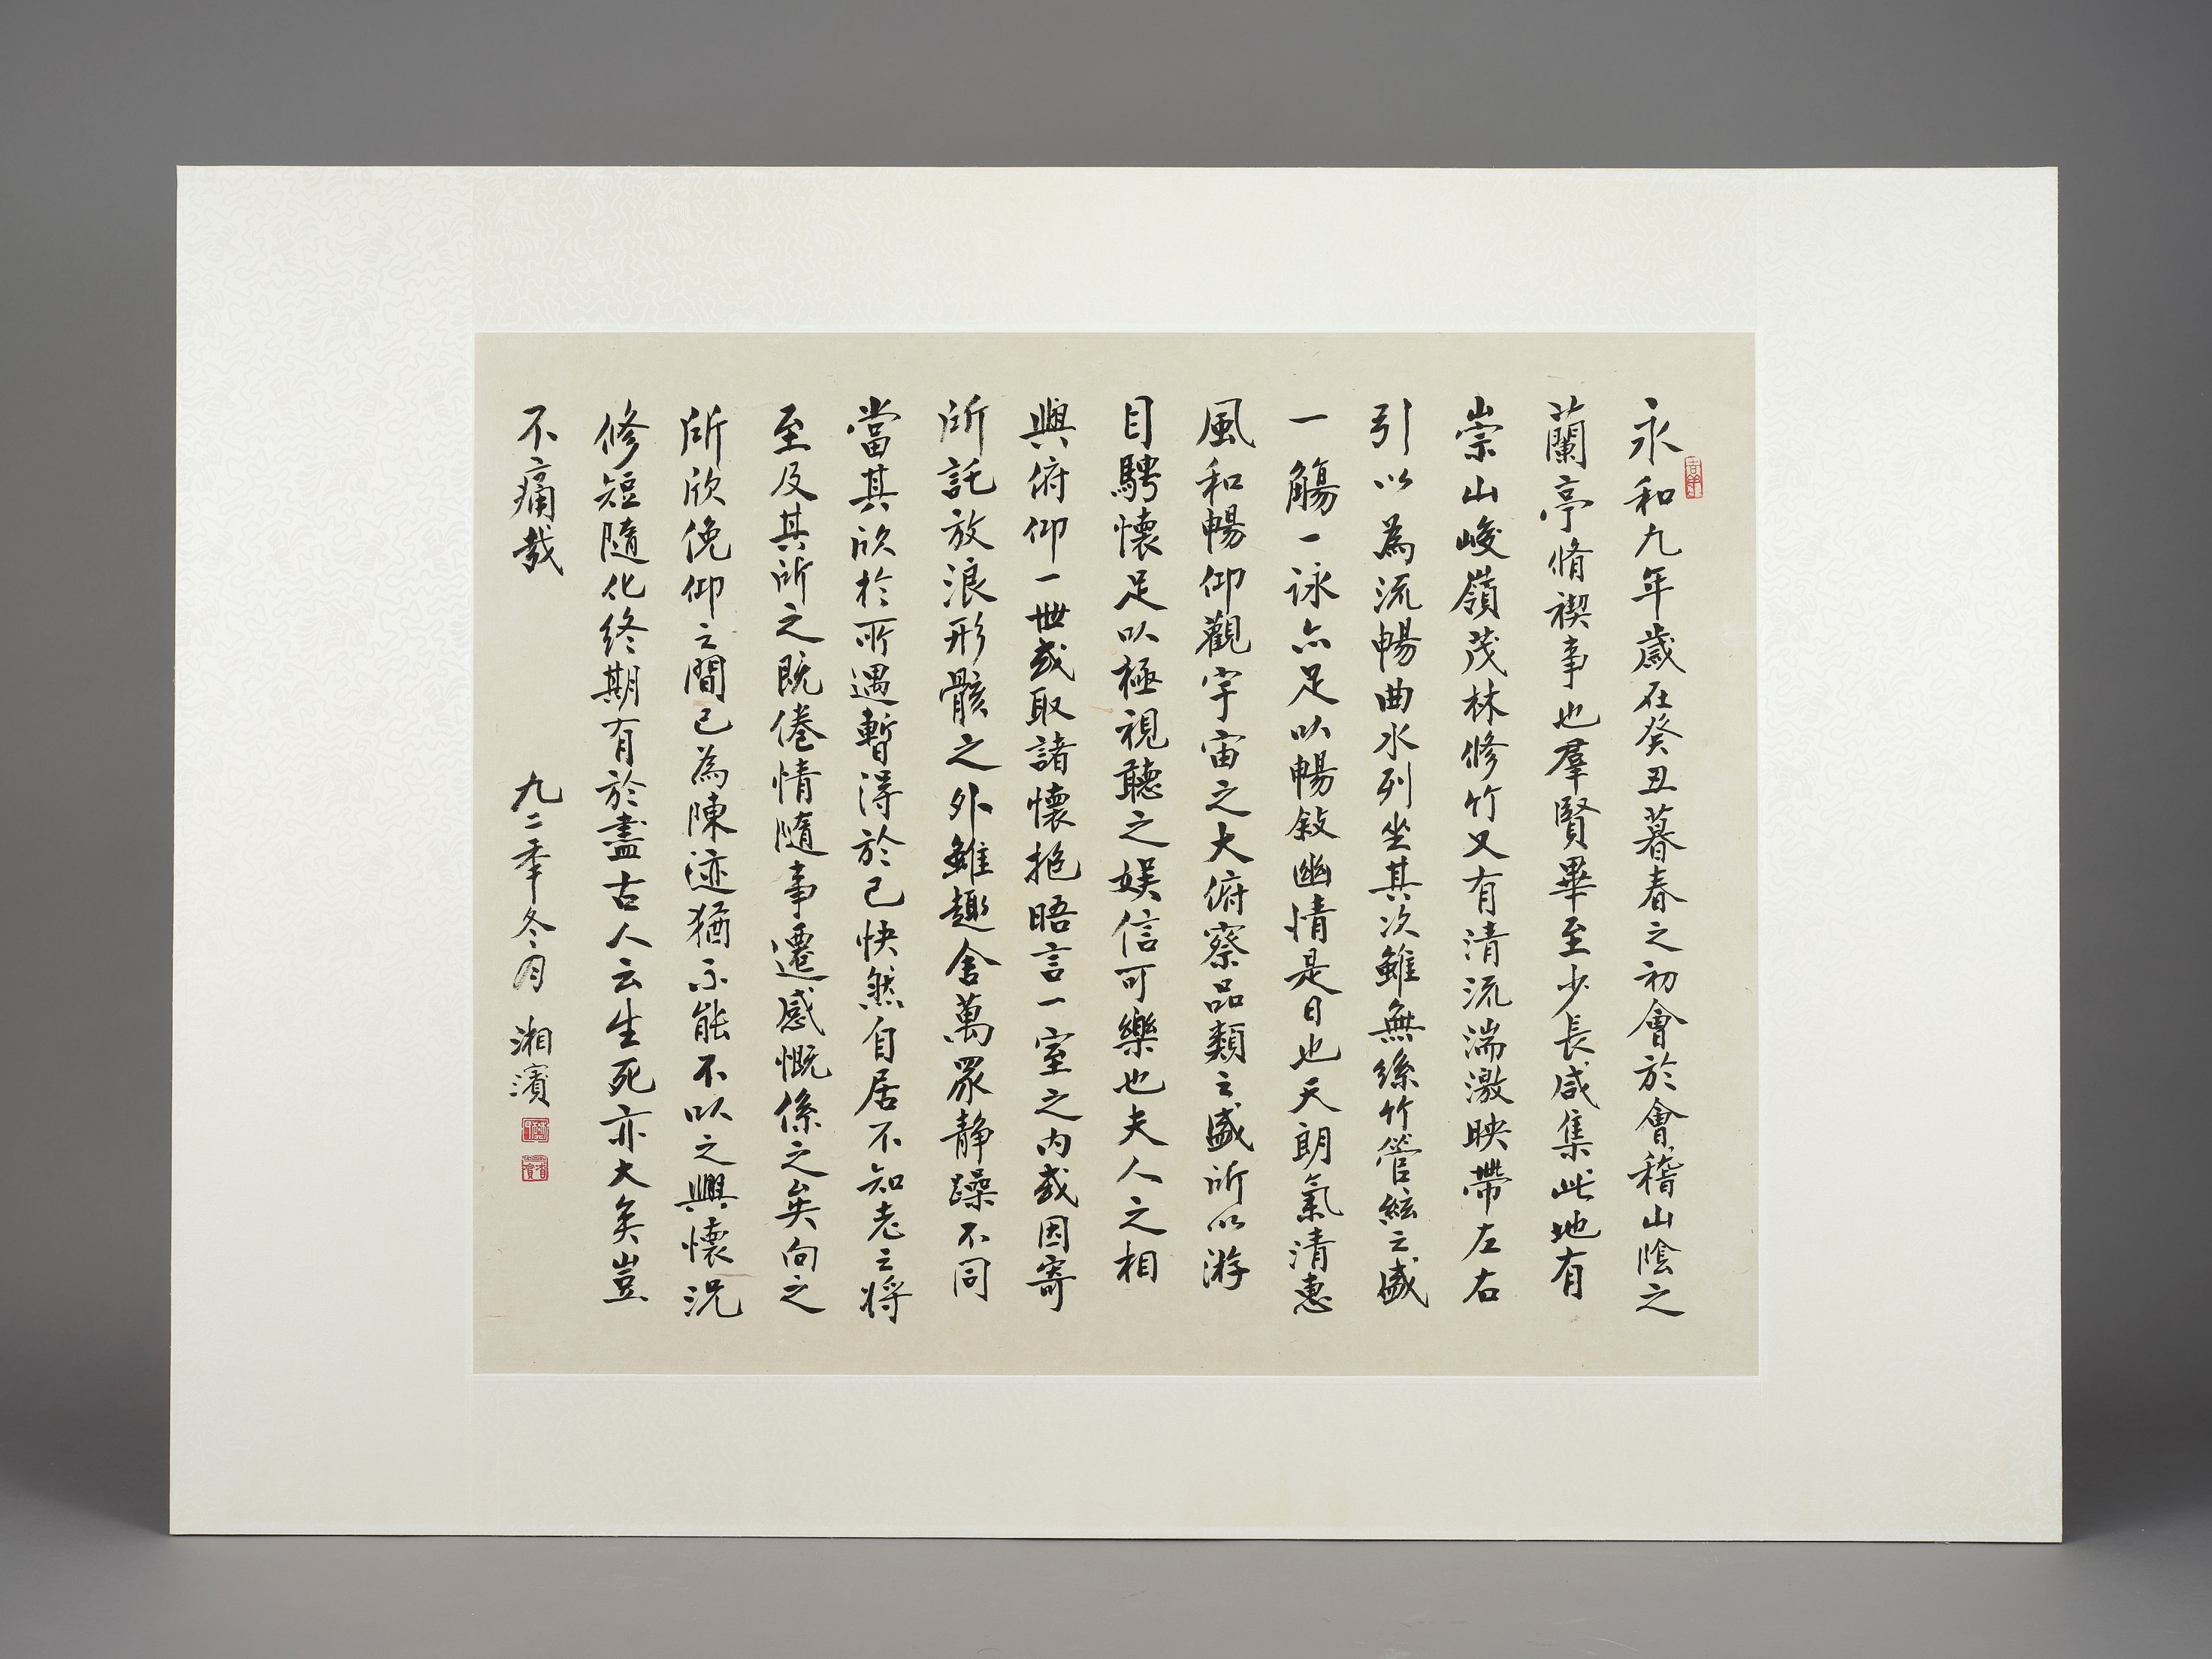 永和九年歲在癸丑暮春之初會於會稽山陰之
蘭亭脩禊事也羣賢畢至少長咸集此地有
崇山峻嶺茂林修竹又有清流湍激映帶左右
引以為流暢曲水列坐其次雖無絲竹管絃之盛
一觴一詠亦足以暢敍幽情是日也天朗氣清惠
風和暢仰觀宇宙之大俯察品類之盛所以游
目騁懷足以極視聽之娛信可樂也夫人之相
與俯仰一世或取諸懷抱晤言一室之內或因寄
所託放浪形骸之外雖趣舍萬眾靜躁不同
當其欣於所遇暫得於己快然自居不知老之將
至及其所之既倦情隨事遷感慨係之矣向之
所欣俛仰之間已為陳迹猶不能不以之興懷況
修短隨化終期有於盡古人云生死亦大矣豈
不痛哉
九二季冬月 湘濱